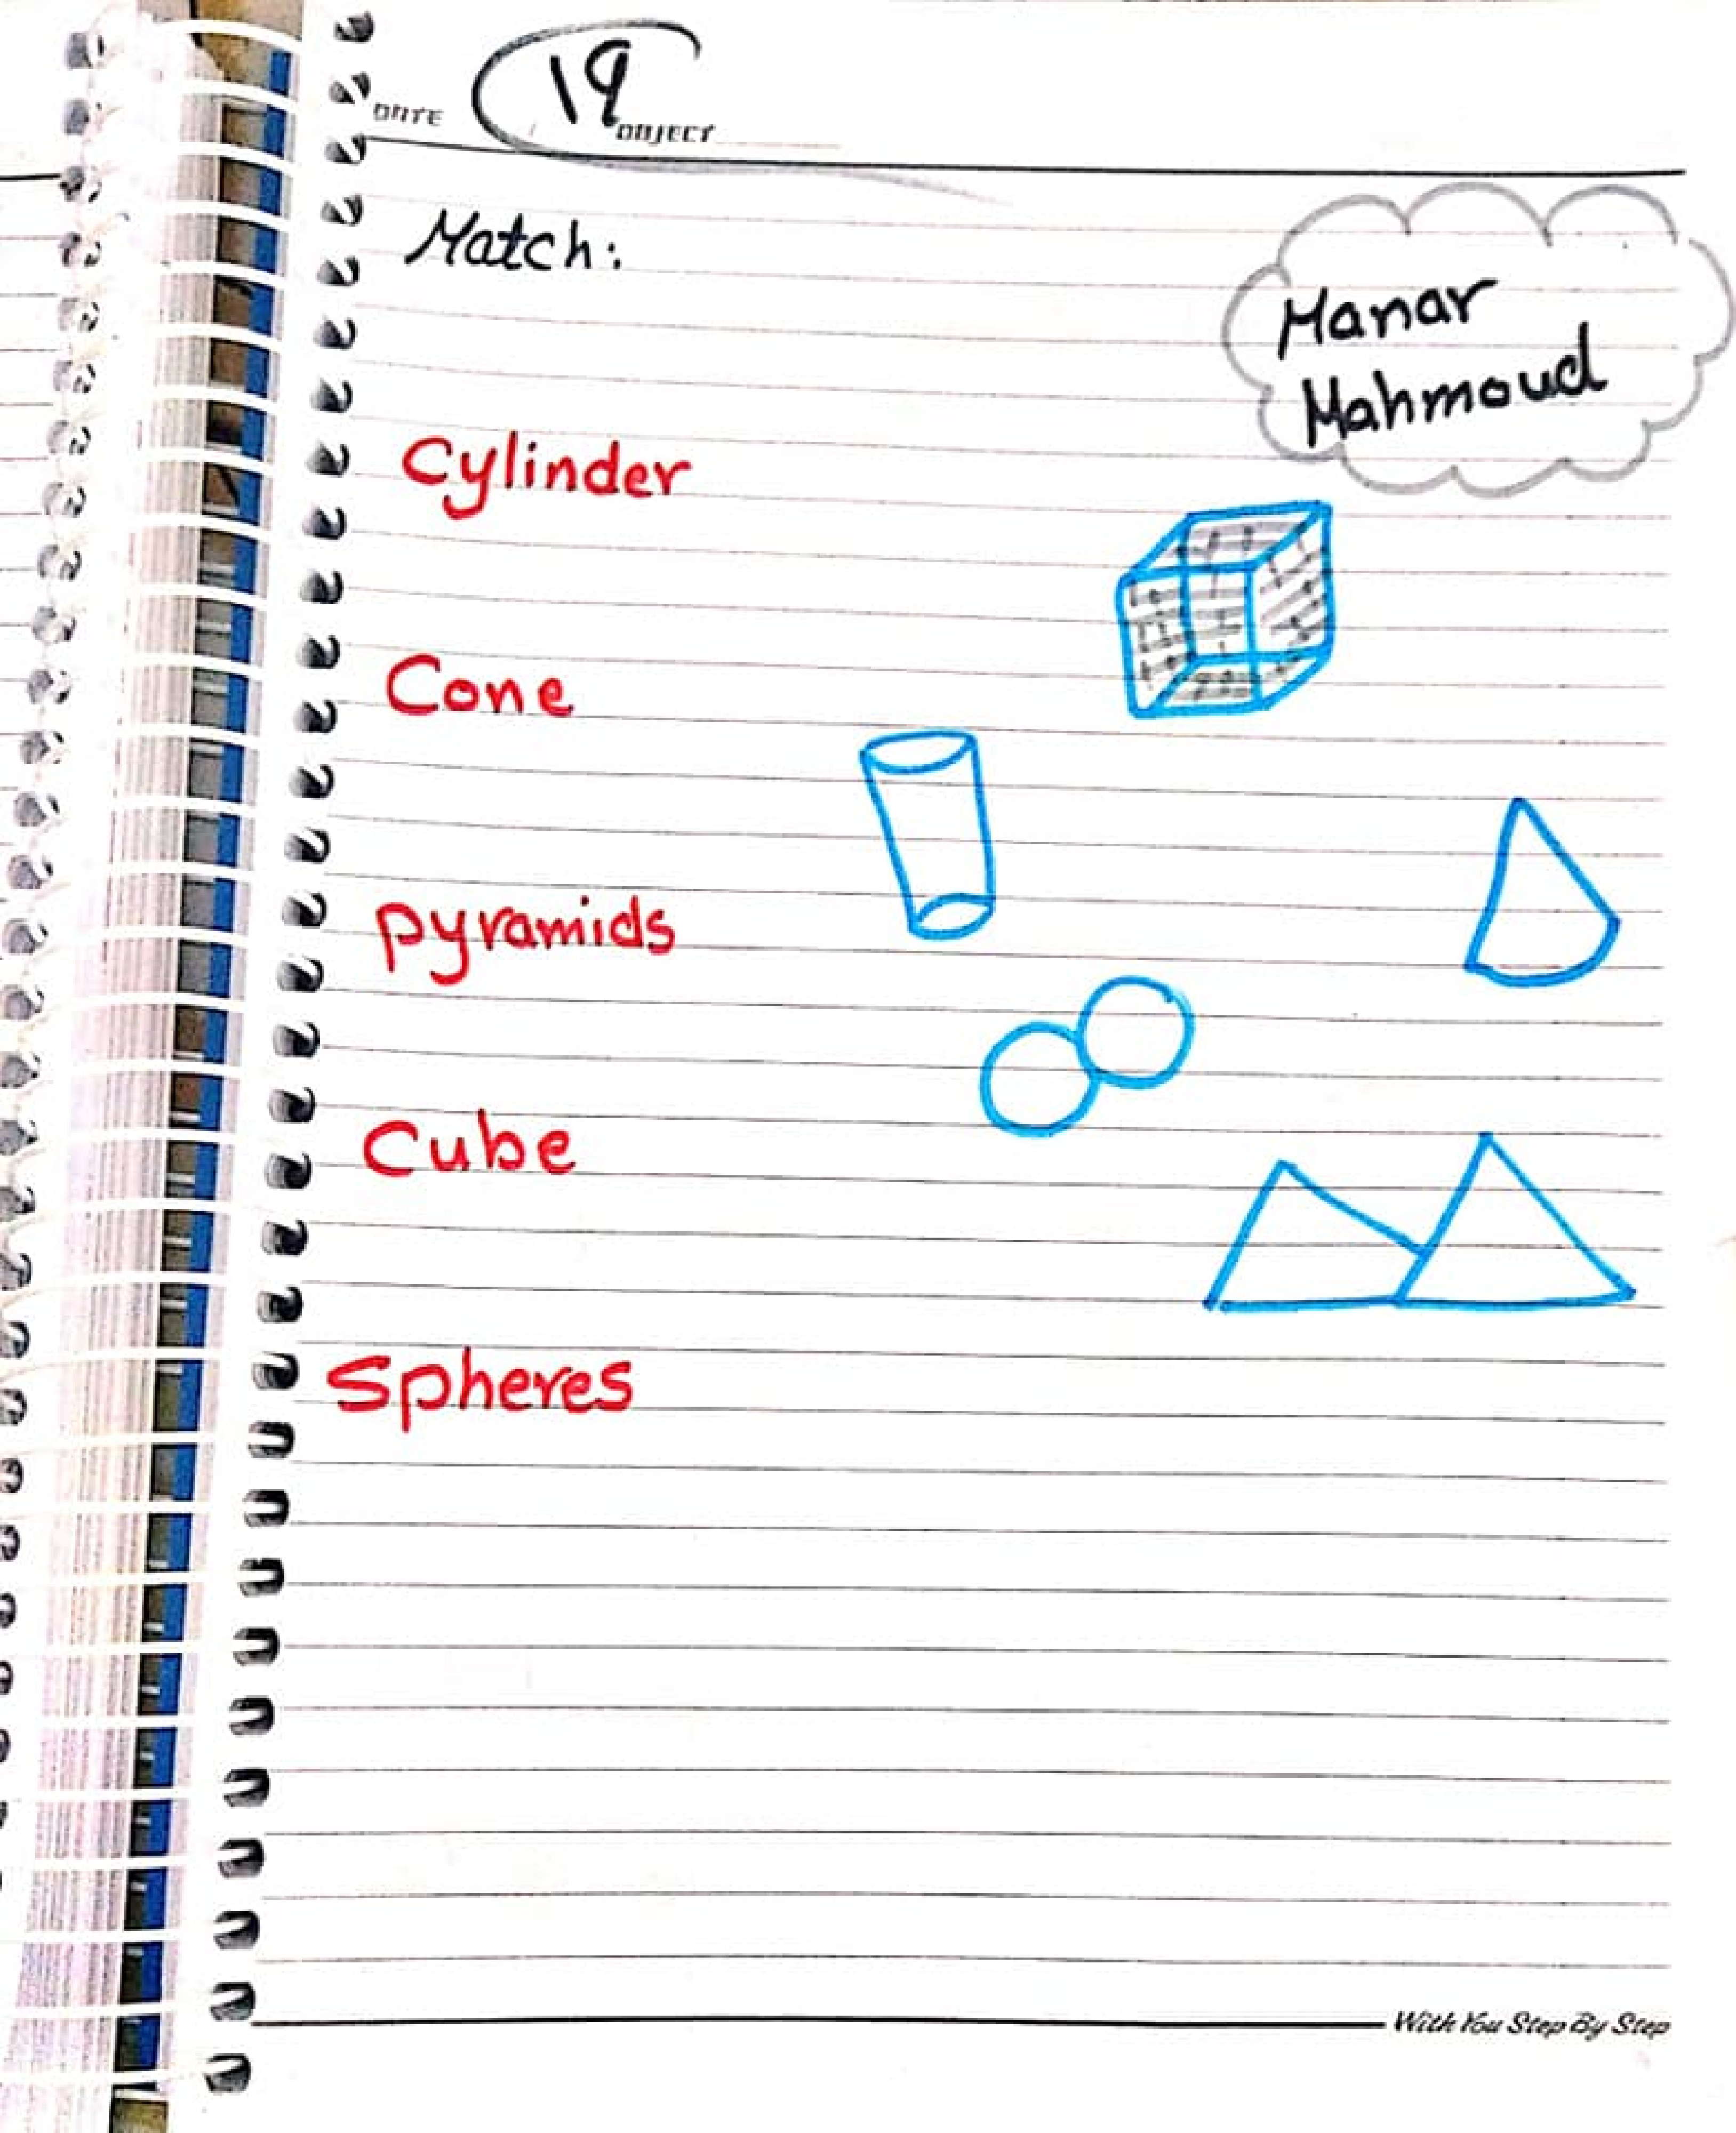 19
DATE OBJECT
Match:
Manar
Mahmoud
Cylinder
Cone
pyramids
Cube
Spheres
With You Step By Step